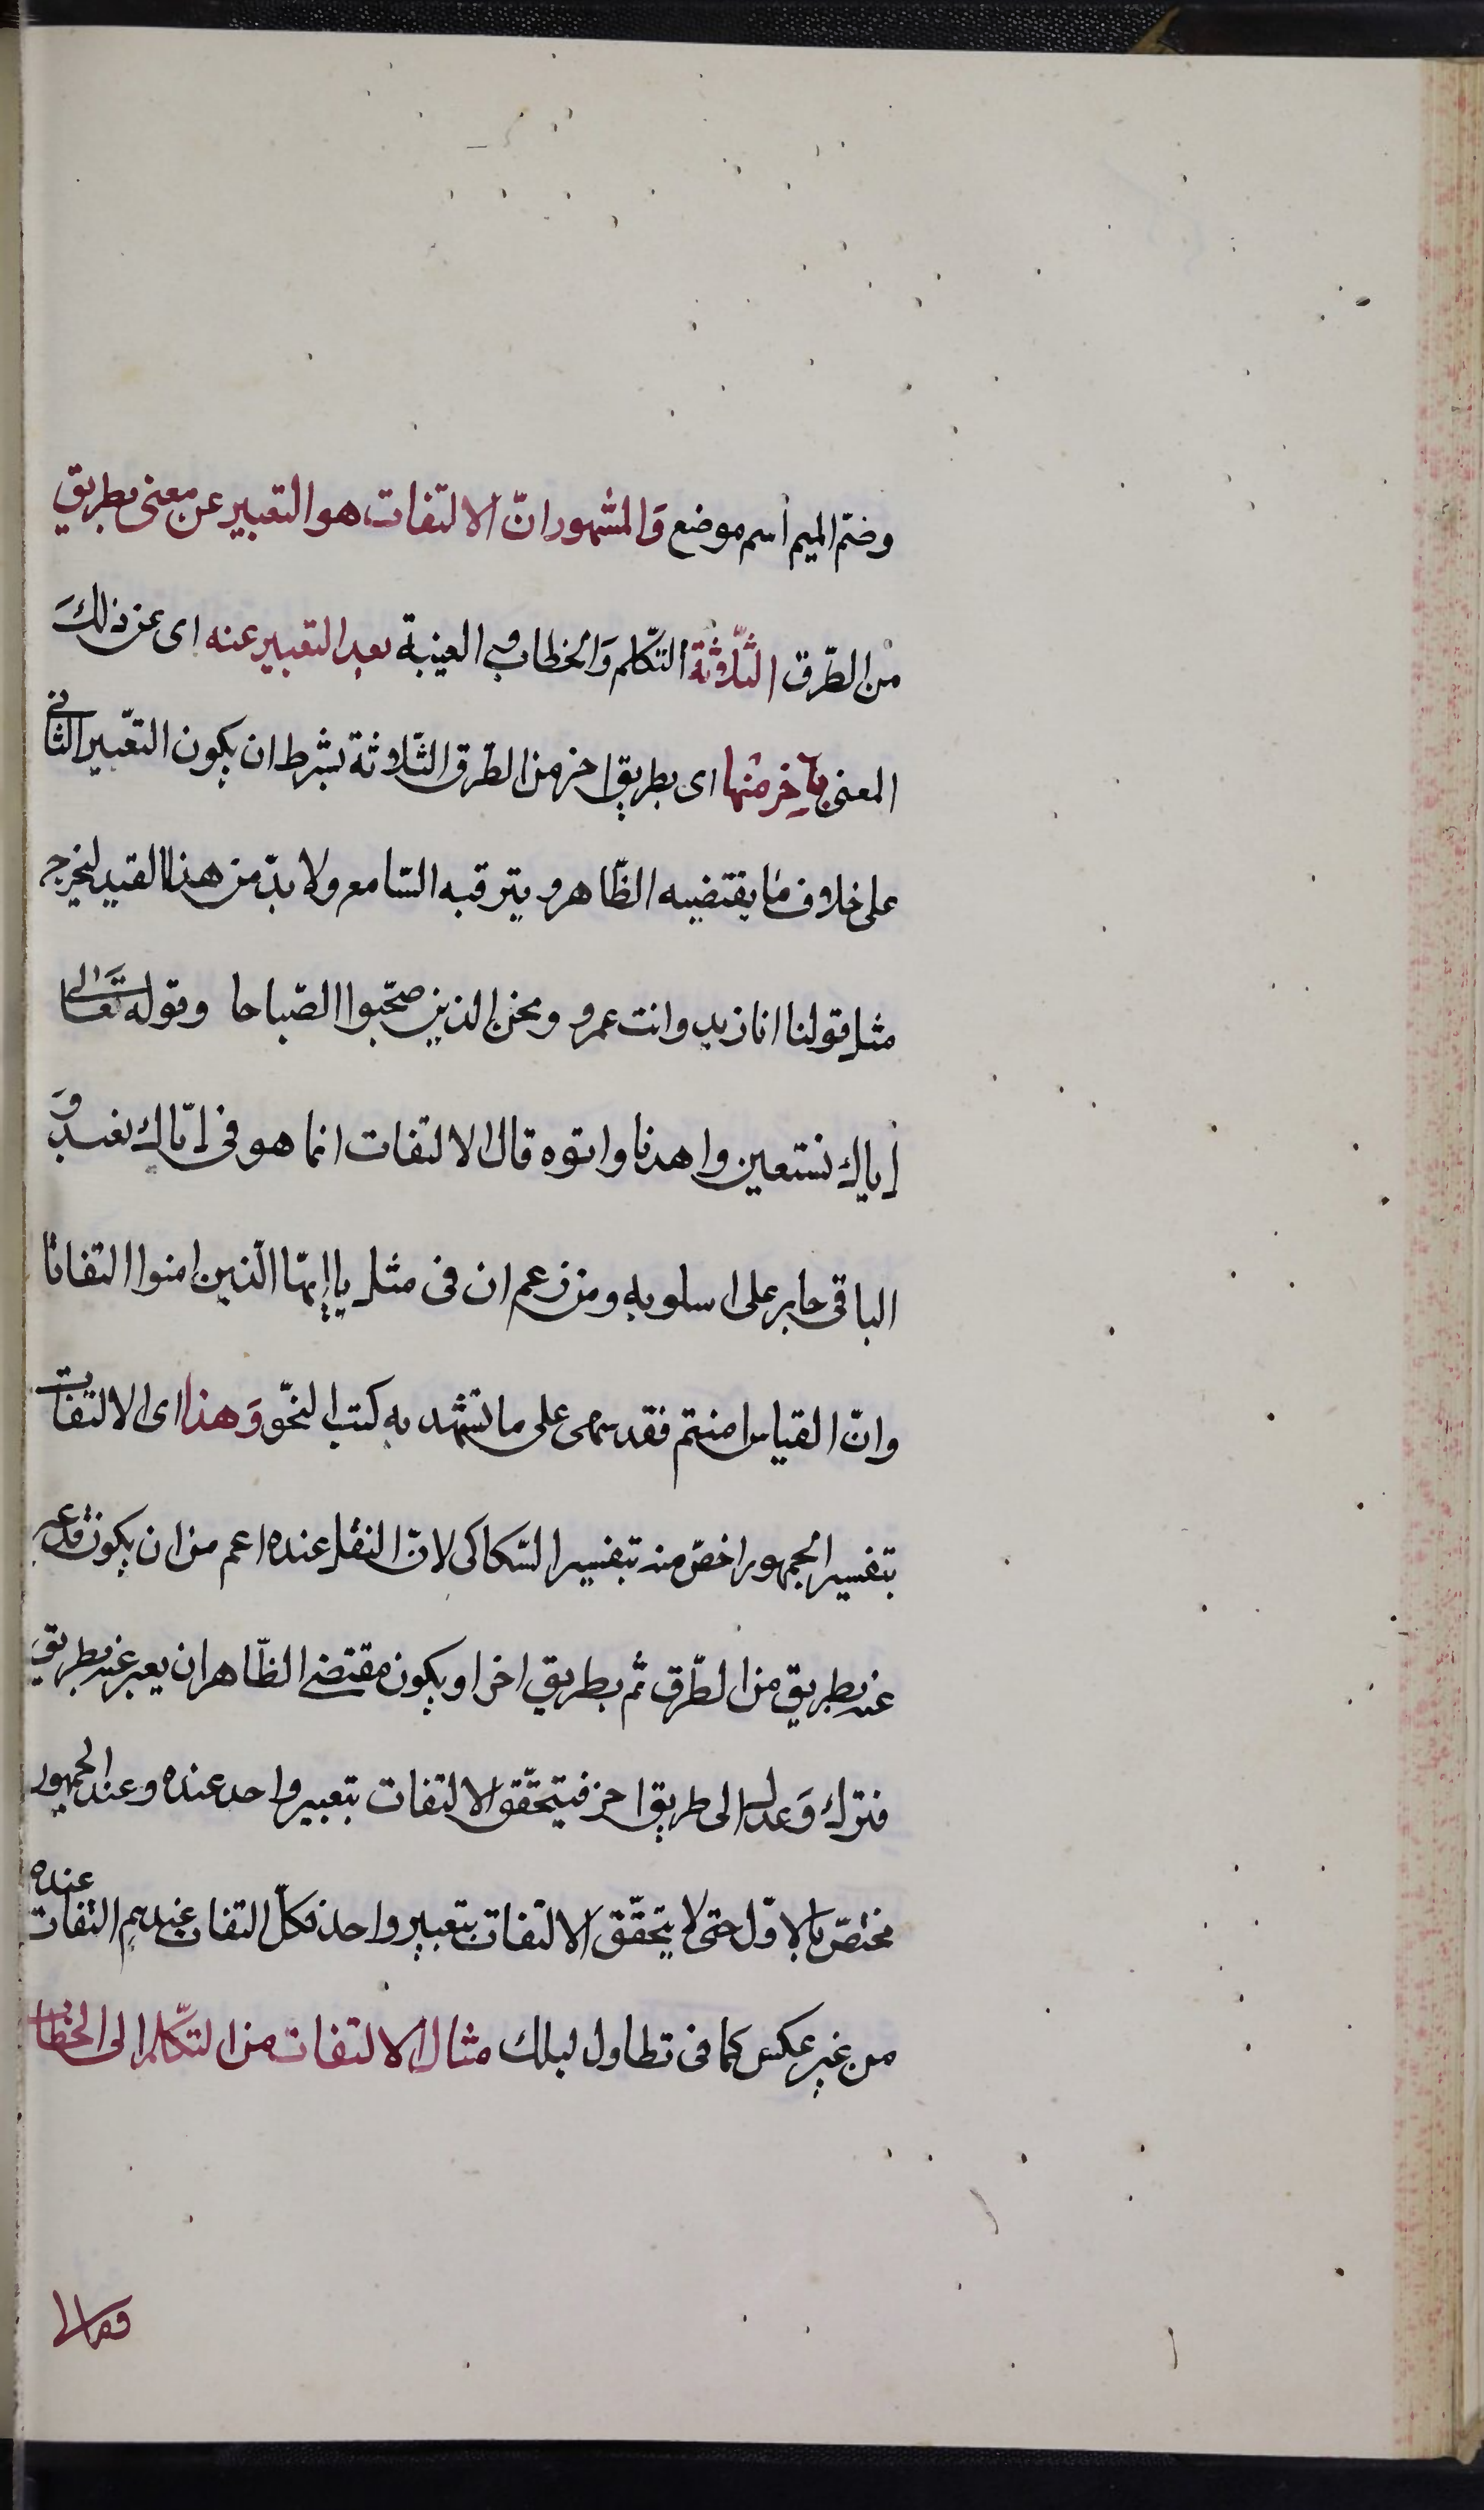 وضمّ الميم اسم موضع وَالمشهور انّ الالتفات هو التعبير عن معنى بطريق
من الطّرق الثّلاثة التكّلم وَالخطاب و الغيبة بعد التعبير عنه اى عن ذلكَ
المعنى بآخر منها اى بطريق اخر من الطّرق الثّلاثة بشرط ان يكون التعّبير الثانى
على خلاف ما يقتضيه الظّاهر و يترقبه السّامع ولا بدّ من هذا القيد ليخرج
مثل قولنا انا زيد وانت عمرو ونحن الذين صحّبوا الصّباحا وقوله تَعالى
اياك نستعين واهدنا وا قال الالتفات انما هو فى ايّاك نعبد وَ
الباقى جار على اسلوبه ومن زعم ان فى مثل يا ايّها الّذين امنوا التفاتا
وانّ القياس امنتم فقد سهى على ما تشهد به كتب النحّو وَهذا اى الالتفات
بتفسير الجمهور اخصّ منه بتفسير السّكاكى لانّ النقل عنده اعم من ان يكون قد عبر
عنه بطريق من الطّرق ثم بطريق اخر او يكون مقتضى الظّاهر ان يعبر عنه بطريق
فترك وَعدل الى طريق اخر فيتحقّق الالتفات بتعبير واحد عنده وعند الجمهور
مختصّ بالاوّل حتى لا يتحقّق الالتفات بتعبير واحد فكلّ التفات عندهم التفات عنده
من غير عكس كما فى تطاول ليلك مثال الالتفات من التكّلم الى الخطاب